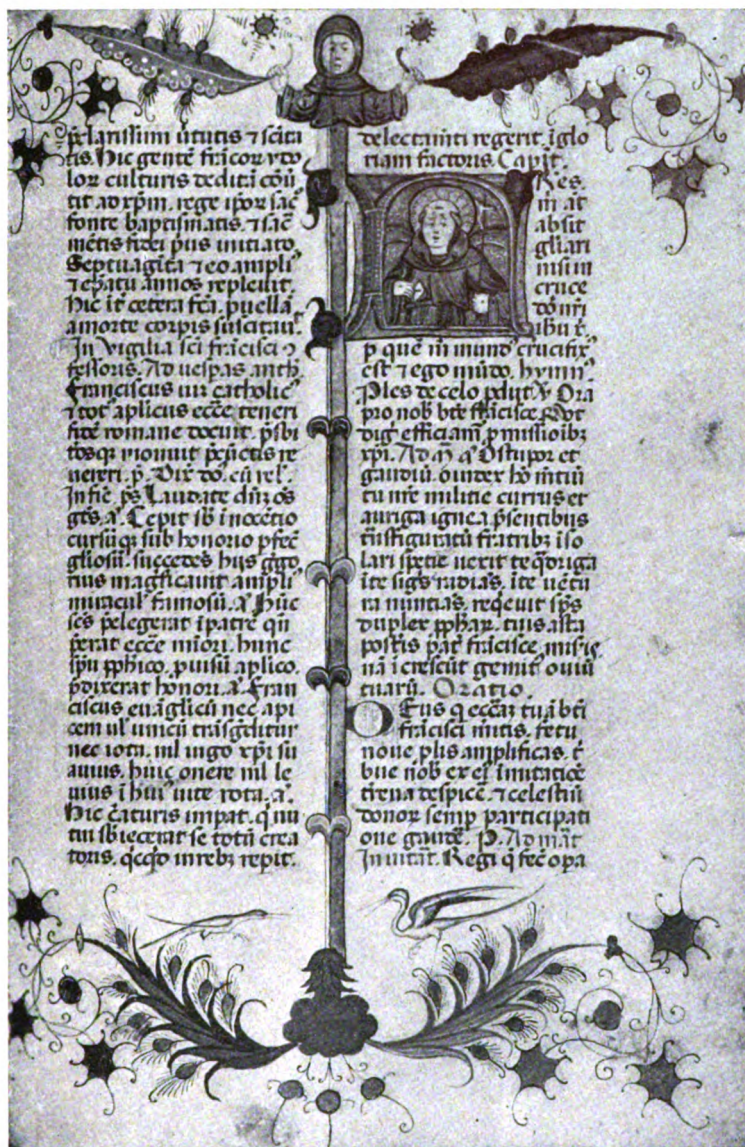 p̄clarissimi ūtutis ⁊ scīta
tis. Hic gentē frācor ydo
lor culturis deditā cōū
tit ad xp̄m. rege ipor sac̄
fonte baptismatis. ⁊ sac̄
mētis fidei p̄us initiato.
Septuagīta ⁊ eo ampli᷒
⁊ ep̄atu annos replevit.
hic īt cetera fc̄a. puellā
a morte corpis suscitav̄.
In vigilia sc̄i frācisci ɔ
fessoris. Ad vesp̄as anth̄.
Franciscus vir catholic᷒
⁊ tot᷒ aplicus ecc̄e teneri
fidē romane docuit. p̄sbi
tosq; monuit p̄ cūctis re
vereri. p̄. Dix̄ do᷒. cū rel᷒.
In fīe p̄s Laudate dn̄ʒ os
gēs. a᷒. Cepit sb̄ īnocētio
cursūq; sub honorio p̄fec̄
gliosū. succedēs hijs g̃go
rius magficavit ampli᷒
miracul᷒ famosū. a᷒ Hūc
sc̄s p̄elegerat ī patrē q̄n
p̄erat ecc̄e miōri. hunc
sp̄u pphico. p̄visū aplico.
p̄dixerat honori. a᷒. Fran
ciscus evāglicū nec api
cem vl᷒ unicū trāsg̃ditur
nec iota. nil iugo xp̄i su
avius. huic onere nil le
vius ī hui᷒ vite rota. a᷒.
Hic c̄aturis impat. q̄ nu
tui sb̄iecerat se totū crea
toris. q̄cq̄d in rebʒ repit.
delectamīti regerit. ī glo
riam factoris. Capit.
Res.
m̄ at
absit
gl̄iari
nisi in
cruce
dn̄i nr̄i
ihū x̄.
p quē m̄ mund᷒ crucifix᷒
est ⁊ ego mūdo. hymn᷒
Ples de celo pdijt. ℣ Ora
pro nob᷒ bt̄e frācisce. ℟ Ut
dig᷒ efficiam̄ p̄missioībʒ
xp̄i. Ad m̄ a᷒ O stupor et
gaudiū. o iudex hō mētiū
tu nr̄e militie currus et
auriga ignea p̄sentibus
trāsfiguratū fratribʒ ī so
lari specie vexit te q̄driga
ī te sigs᷒ radias. ī te vētu
ra nuntias. reqevit sp̄s
duplex pphaʒ. tuis asta
post᷒is pat᷒ frācisce. misis
nā ī crescūt gemit᷒ oviū
tuarū. Oratio.
Deus q̄ ecc̄az tuā bt̄i
frācisci m̄itis. fetu
nove plis amplificas. t̄
bue nob᷒ ex ei᷒ īmitatiōe
t̄rena despic̄e. ⁊ celestiū
donoʒ semp participati
one gaud̄e. P. Ad māt᷒
Invitāt᷒. Regi q̄ fec̄ opa